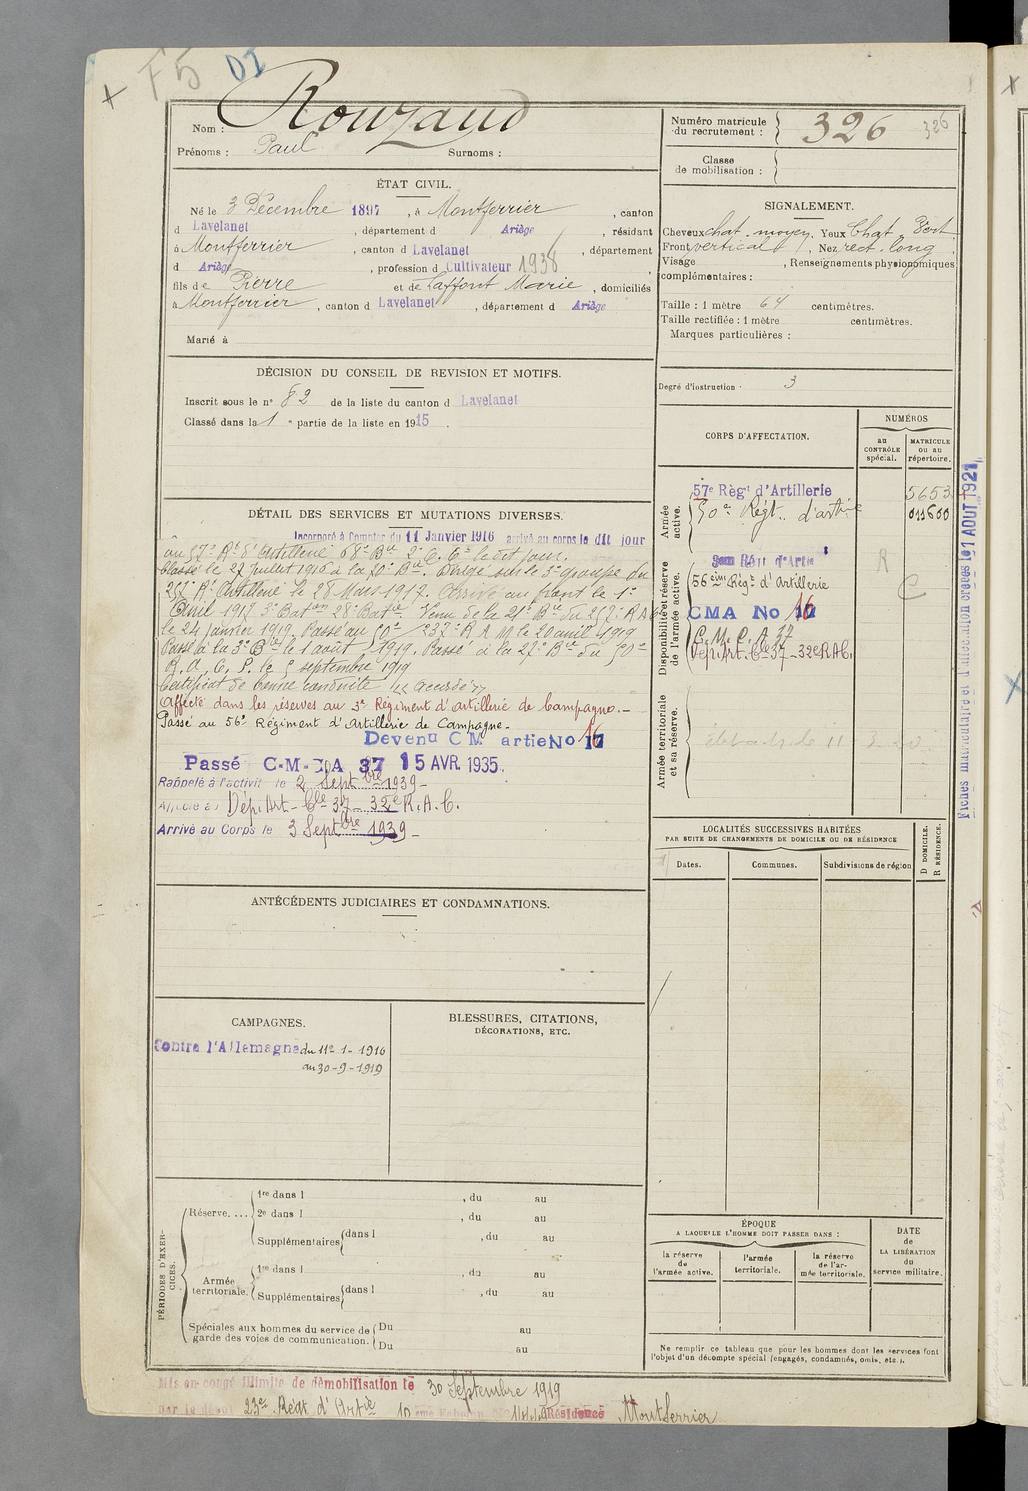 F5 DI
Nom : Rouzaud
Prénoms : Paul Surnoms :
Numéro matricule du recrutement : 326 326
Classe de mobilisation :
ÉTAT CIVIL.
Né le 3 Décembre 1897, à Montferrier, canton
d Lavelanet, département d Ariège, résidant
à Montferrier, canton d Lavelanet, département
d Ariège, profession d Cultivateur 1938
fils de Pierre et de Laffont Marie, domiciliés
à Montferrier, canton d Lavelanet, département d Ariège
Marié à
SIGNALEMENT.
Cheveux chat. moyen, Yeux Chat. Vert
Front vertical, Nez rect. long
Visage , Renseignements physiognomiques
complémentaires :
Taille : 1 mètre 64 centimètres.
Taille rectifiée : 1 mètre centimètres.
Marques particulières :
Degré d'instruction : 3
DÉCISION DU CONSEIL DE REVISION ET MOTIFS.
Inscrit sous le n° 82 de la liste du canton d Lavelanet
Classé dans la 1 e partie de la liste en 1915.
DÉTAIL DES SERVICES ET MUTATIONS DIVERSES.
Incorporé à Compter du 11 Janvier 1916 arrivé au corps le dit jour
au 57e Rt d'Artillerie 68e Bie le dit jour.
Classé le 27 Juillet 1916 à la 70e Bie. Dirigé sur le 5e groupe du
257e Rt Artillerie le 28 Mars 1917. Arrivé au front le 1er
Avril 1917 28e Batie. Venu de la 21e Bie du 257e RA
le 24 janvier 1919. Passé au 50e le 20 avril 1919
Passé à la 3e Bie le 1 août 1919. Passé à la 27e Bie du 50e
R. A. C. P. le 5 septembre 1919
Certificat de bonne conduite "Accordé"
Affecté dans les réserves au 3e Régiment d'artillerie de Campagne.-
Passé au 56e Régiment d'Artillerie de Campagne-
Devenu C M artie No 17 16
Passé C-M-A 37 15 AVR. 1935
Rappelé à l'activité le 2 Septbre 1939-
Affecté au Dép. Art- Cle 37- 32e R.A.C.
Arrivé au Corps le 3 Septbre 1939-
CORPS D'AFFECTATION.
NUMÉROS
au CONTRÔLE spécial.
MATRICULE ou au répertoire.
Armée active.
57e Règt d'Artillerie 5653
50e Régt. d'artie 011600
Disponibilité et réserve de l'armée active.
3em Rétt d'Artie
56eme Régt d'Artillerie
CMA No 17 16
C. M. C. A 37
Dép. Art. Cle 37- 32e RAC.
R
C
Armée territoriale et sa réserve.
Fiches matriculaire et d'affectation créées le 1 AOUT 1921
LOCALITÉS SUCCESSIVES HABITÉES
PAR SUITE DE CHANGEMENTS DE DOMICILE OU DE RÉSIDENCE
Dates. Communes. Subdivisions de région
D DOMICILE. R RÉSIDENCE.
ANTÉCÉDENTS JUDICIAIRES ET CONDAMNATIONS.
CAMPAGNES.
Contre l'Allemagne du 11-1-1916
au 30-9-1919
BLESSURES, CITATIONS,
DÉCORATIONS, ETC.
PÉRIODES D'EXERCICES.
Réserve.... 1re dans l , du au
2e dans l , du au
Supplémentaires dans l , du au
Armée territoriale. 1re dans l , du au
Supplémentaires dans l , du au
Spéciales aux hommes du service de garde des voies de communication. Du au
Du au
ÉPOQUE
A LAQUELLE L'HOMME DOIT PASSER DANS :
la réserve de l'armée active.
l'armée territoriale.
la réserve de l'armée territoriale.
DATE de LA LIBÉRATION du service militaire.
Ne remplir ce tableau que pour les hommes dont les services font
l'objet d'un décompte spécial (engagés, condamnés, omis, etc.).
Mis en congé illimité de démobilisation le 30 Septembre 1919
par le dépôt 23e Régt d'Artie 10 eme Echelon Résidence Montferrier